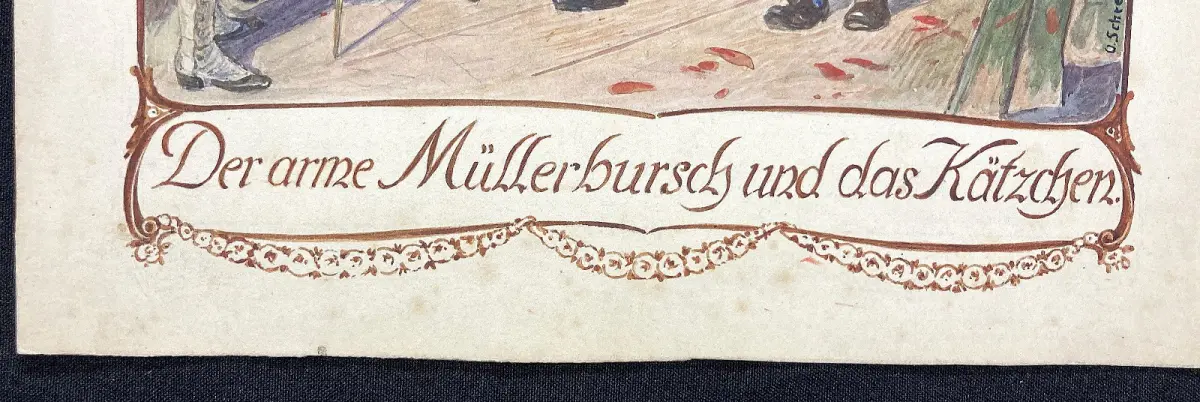 Der arme Müllerbursch und das Kätzchen.